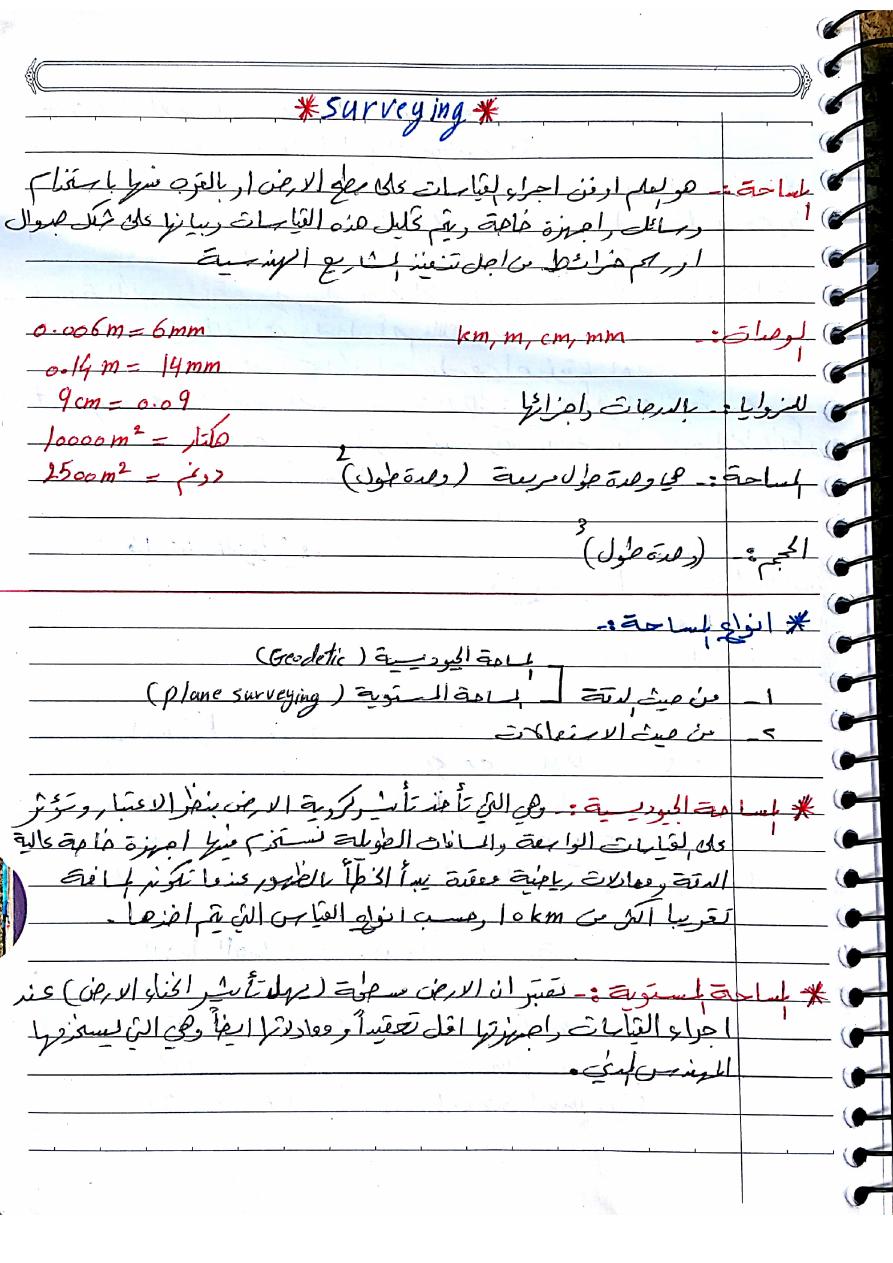 * Surveying *
المساحة :- هو العلم او فن اجراء القياسات على سطح الارض او بالقرب منها باستخدام
وسائل واجهزة خاصة ويتم تحليل هذه القياسات وبيانها على شكل جداول
او رسم خرائط من اجل تنفيذ المشاريع الهندسية
الوحدات :- km, m, cm, mm
0.006m = 6mm
0.14 m = 14mm
للزوايا :- بالدرجات واجزائها
9cm = 0.09
10000m² = هكتار
المساحة :- هي وحدة طول مربعة (وحدة طول)²
2500m² = دونم
الحجم :- (وحدة طول)³
* انواع المساحة :-
المساحة الجيوديسية (Geodetic)
١- من حيث الدقة المساحة المستوية (plane surveying)
٢- من حيث الاستعمالات
* المساحة الجيوديسية :- وهي التي تأخذ تأثير كروية الارض بنظر الاعتبار وتؤثر
على القياسات الواسعة والمسافات الطويلة نستخدم فيها اجهزة خاصة عالية
الدقة ومعادلات رياضية معقدة يبدأ الخطأ بالظهور عندما تكون المسافة
تقريبا اكثر من 10km وحسب انواع القياس التي يتم اخذها.
* المساحة المستوية :- تعتبر ان الارض مسطحة (يهمل تأثير انحناء الارض) عند
اجراء القياسات واجهزتها اقل تعقيداً ومعادلاتها ايضاً وهي التي يستخدمها
المهندس المدني.